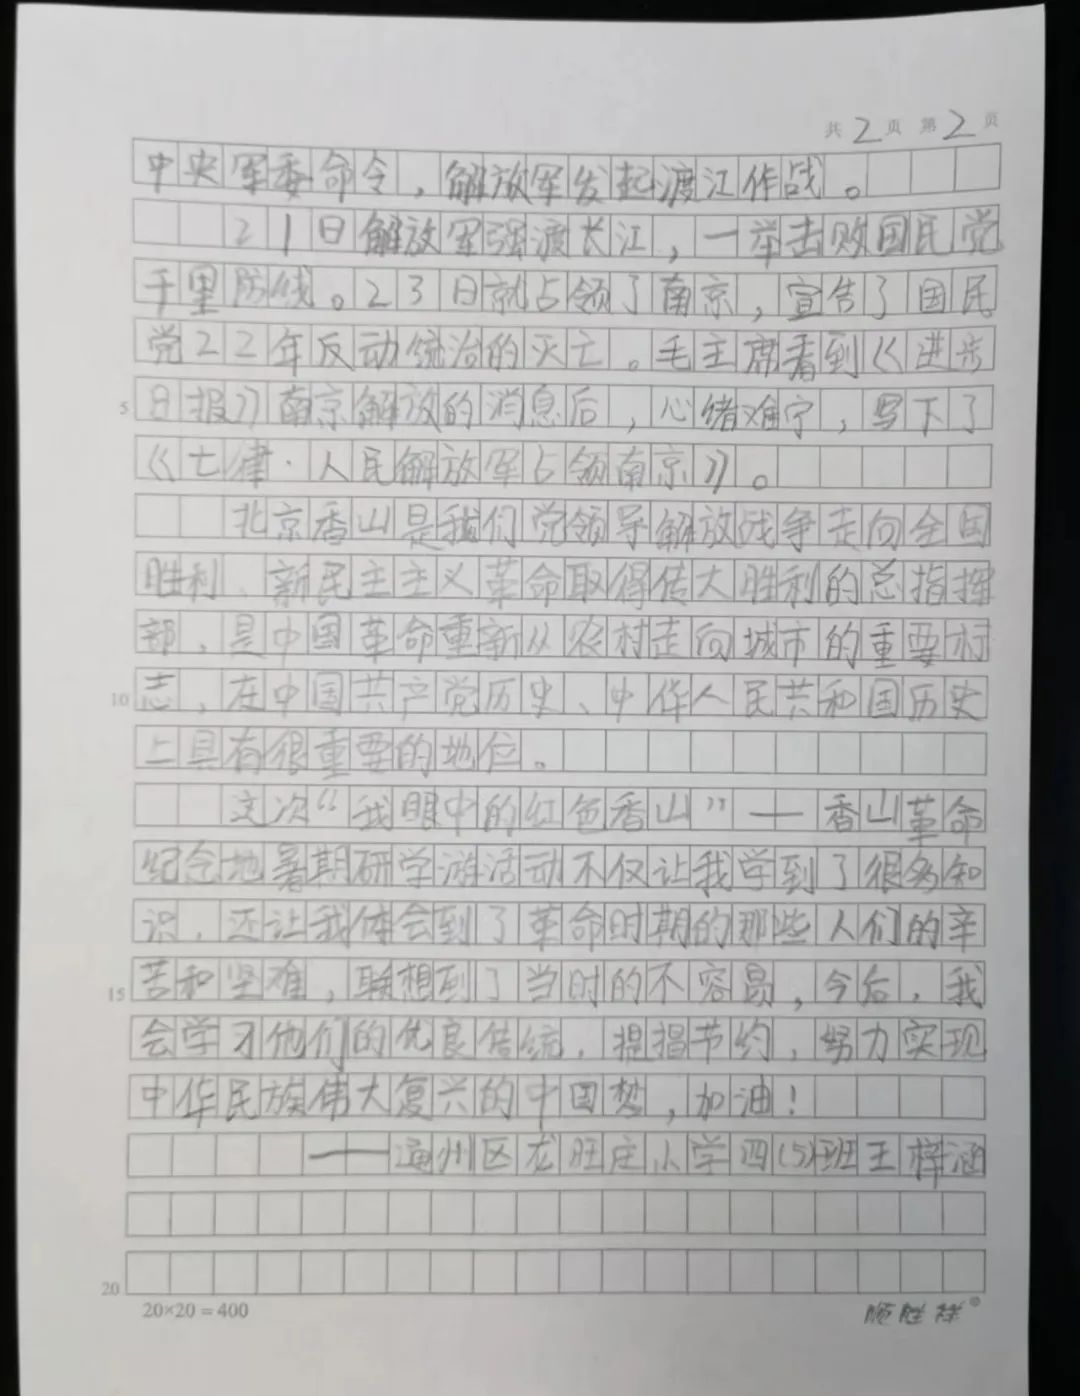 共2页 第2页
中央军委命令，解放军发起渡江作战。
21日解放军强渡长江，一举击败国民党
千里防线。23日就占领了南京，宣告了国民
党22年反动统治的灭亡。毛主席看到《进步
5 日报》南京解放的消息后，心绪难宁，写下了
《七律·人民解放军占领南京》。
北京香山是我们党领导解放战争走向全国
胜利、新民主主义革命取得伟大胜利的总指挥
部，是中国革命重新从农村走向城市的重要标
10 志，在中国共产党历史、中华人民共和国历史
上具有很重要的地位。
这次“我眼中的红色香山”—香山革命
纪念地暑期研学游活动不仅让我学到了很多知
识，还让我体会到了革命时期的那些人们的辛
15 苦和坚难，联想到了当时的不容易，今后，我
会学习他们的优良传统，提揭节约，努力实现
中华民族伟大复兴的中国梦，加油！
——通州区龙旺庄小学四(5)班王梓涵
20
20×20=400
顺胜祥